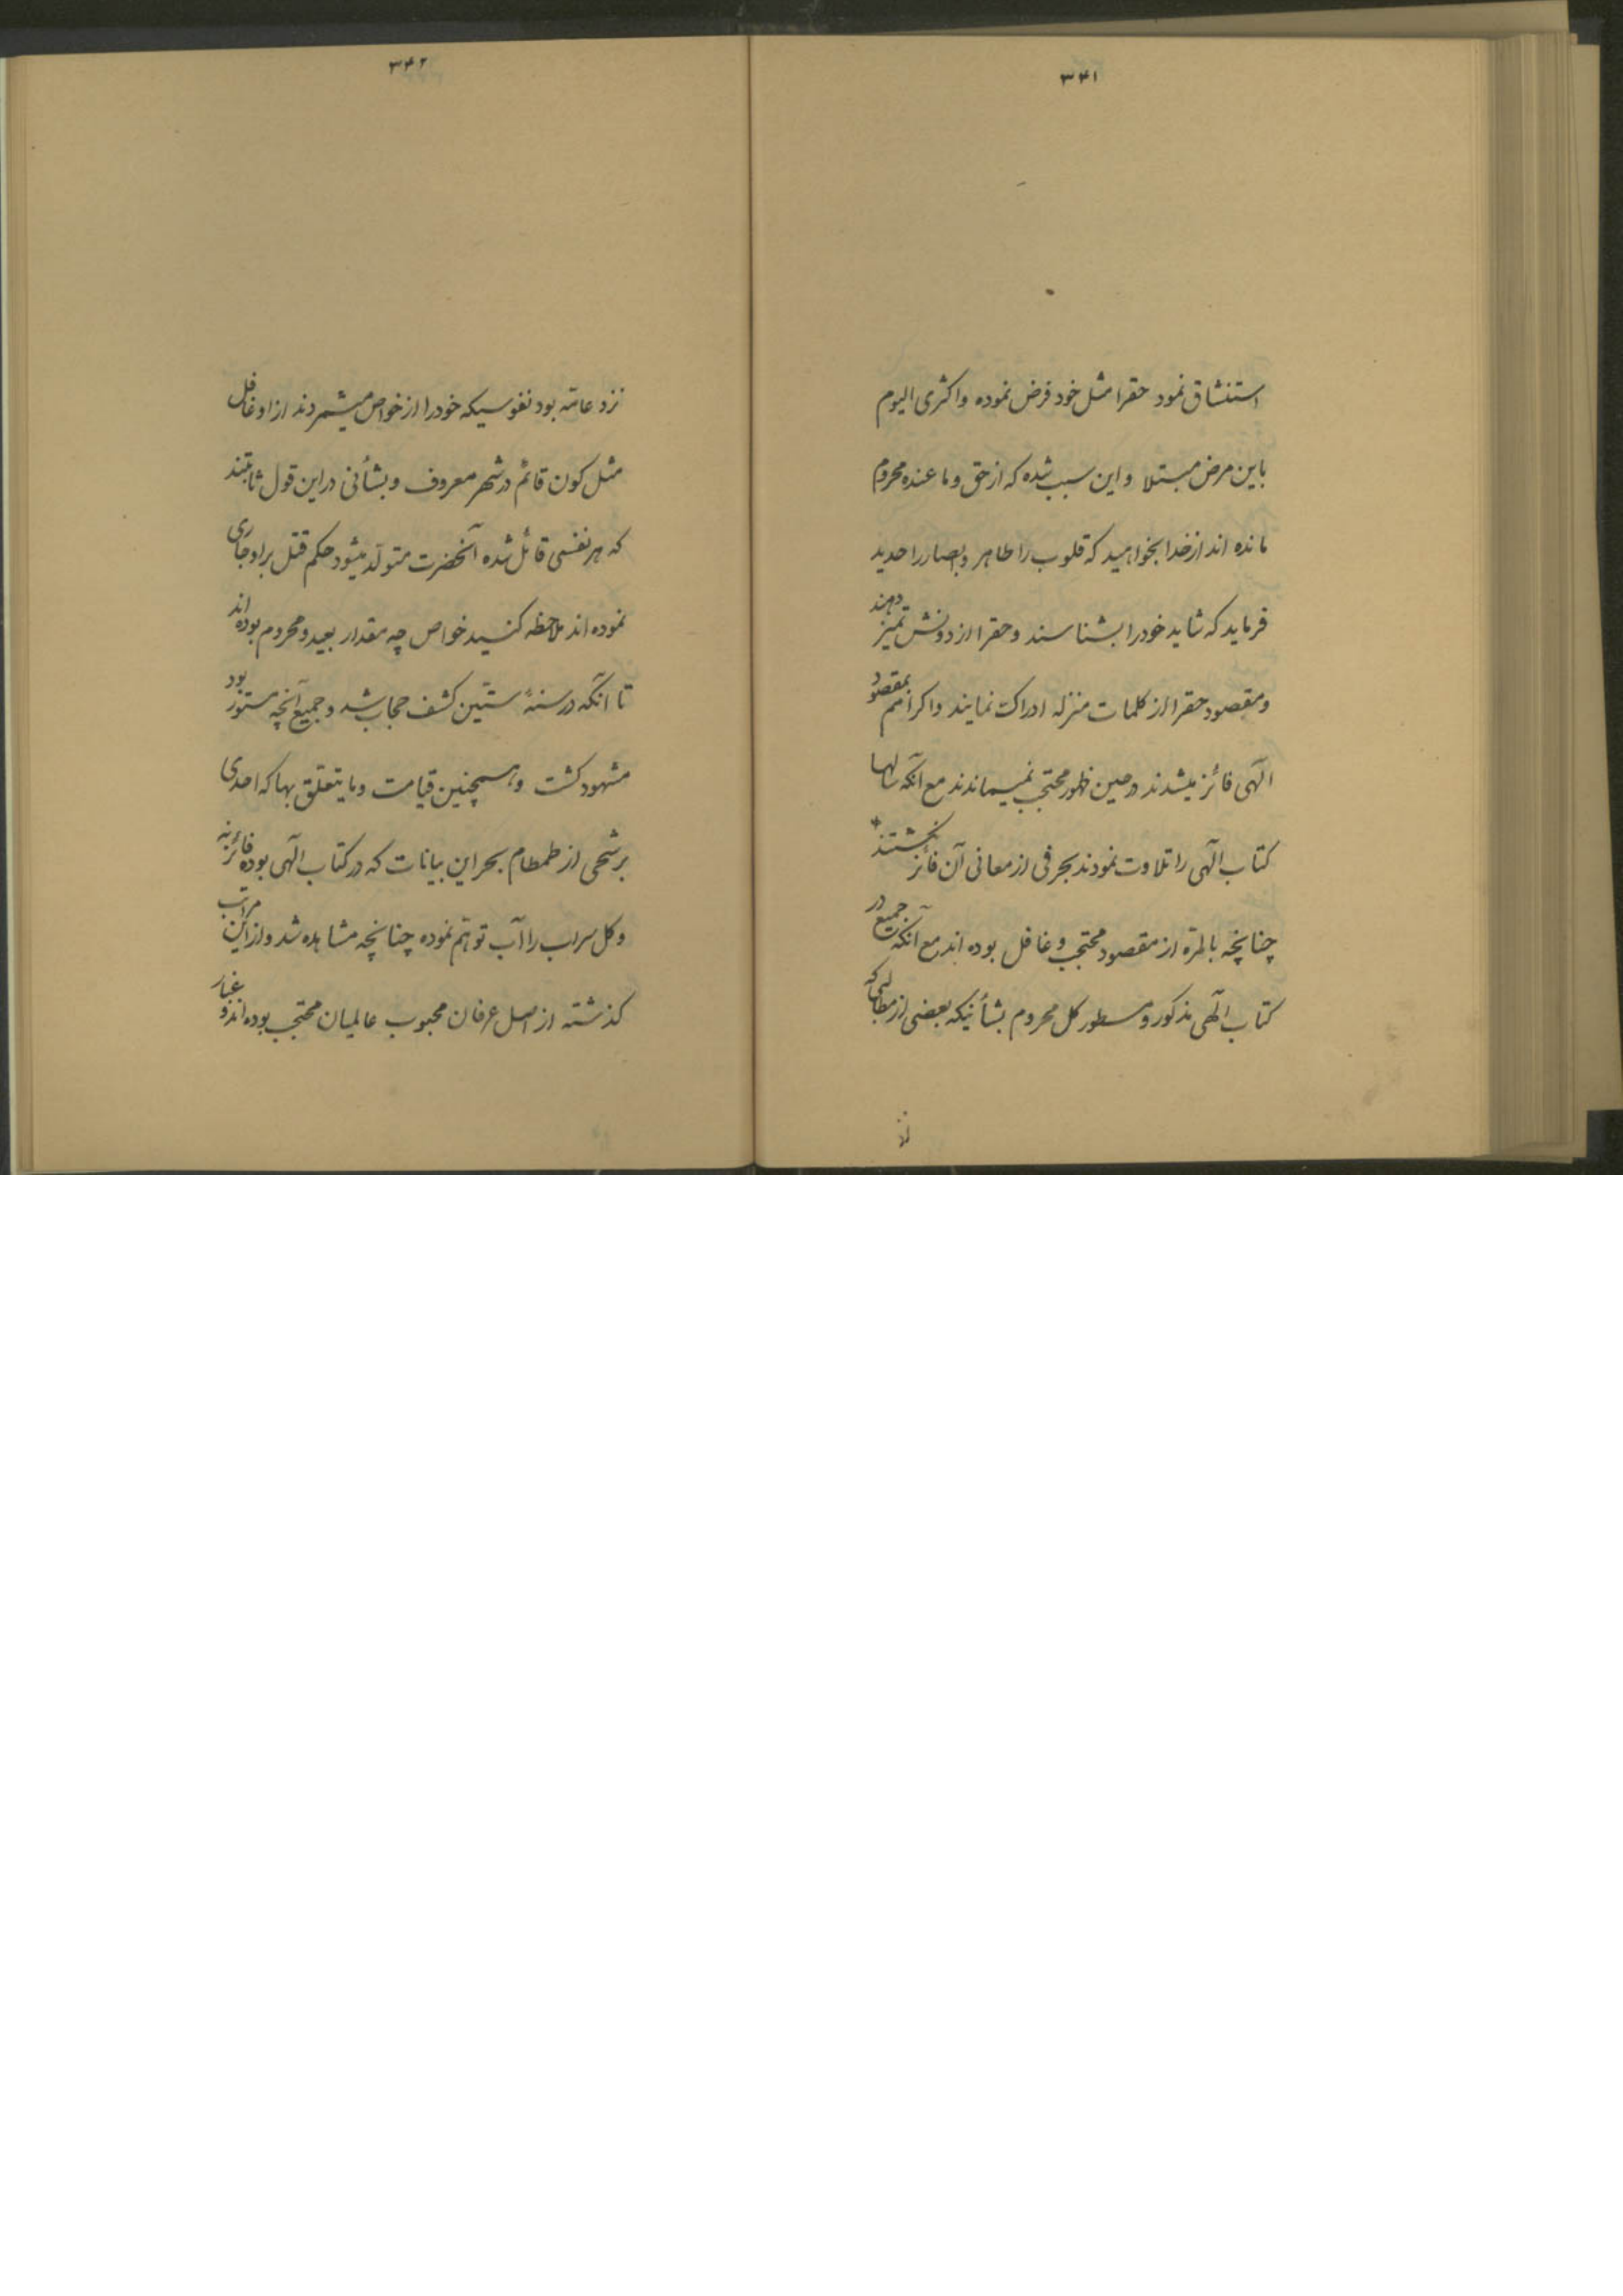 ۳۴۱
استنشاق نمود حقرا مثل خود فرض نموده واکثری الیوم
باین مرض مبتلا واین سبب شده که از حق وما عنده محروم
مانده اند از خدا بخواهید که قلوب را طاهر وابصار را حدید
فرماید که شاید خود را بشناسند وحقرا از دونش تمیز دهند
ومقصود حقرا از کلمات منزله ادراک نمایند واکر امم بمقصود
الهی فائز میشدند در حین ظهور محتجب نمیماندند مع آنکه سالها
کتاب الهی را تلاوت نمودند بحرفی از معانی آن فائز نکشتند *
چنانچه بالمرّه از مقصود محتجب وغافل بوده اند مع آنکه جمیع در
کتاب الهی مذکور ومسطور کل محروم بشأنیکه بعضی از مطالبی که
نزد
۳۴۲
نزد عامّه بود نفوسیکه خود را از خواص میشمردند از او غافل
مثل کون قائم در شهر معروف وبشأنی در این قول ثابتند
که هر نفسی قائل شده آنحضرت متولّد میشود حکم قتل بر او جاری
نموده اند ملاحظه کنید خواص چه مقدار بعید ومحروم بوده اند
تا آنکه در سنهٔ ستّین کشف حجاب شد وجمیع آنچه مستور بود
مشهود کشت وهمچنین قیامت وما یتعلّق بها که احدی
برشحی از طمطام بحر این بیانات که در کتاب الهی بوده فائز نه
وکل سراب را آب توهّم نموده چنانچه مشاهده شد واز این مراتب
کذشته از اصل عرفان محبوب عالمیان محتجب بوده اند وغبار